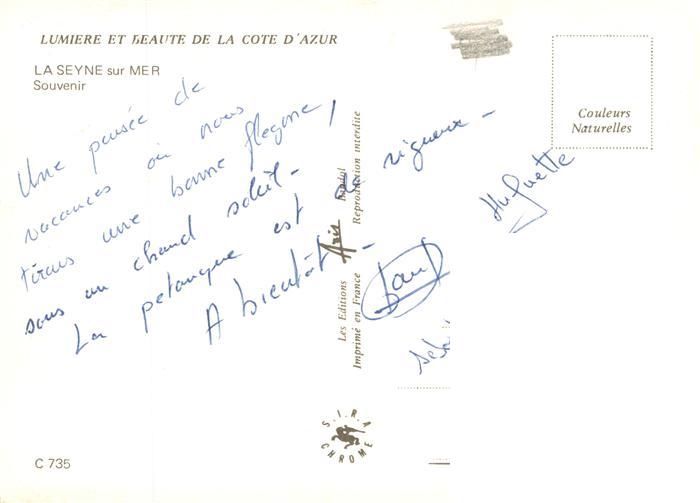 LUMIERE ET BEAUTE DE LA COTE D'AZUR
LA SEYNE sur MER
Souvenir
Une pensée de
vacances où nous
tirons une bonne flegme,
sous un chaud soleil -
La petanque est de rigueur -
A bientôt -
Huguette
Couleurs
Naturelles
Les Editions Aris Bandol
Imprimé en France Reproduction interdite
S.I.R.A.
CHROME
C 735